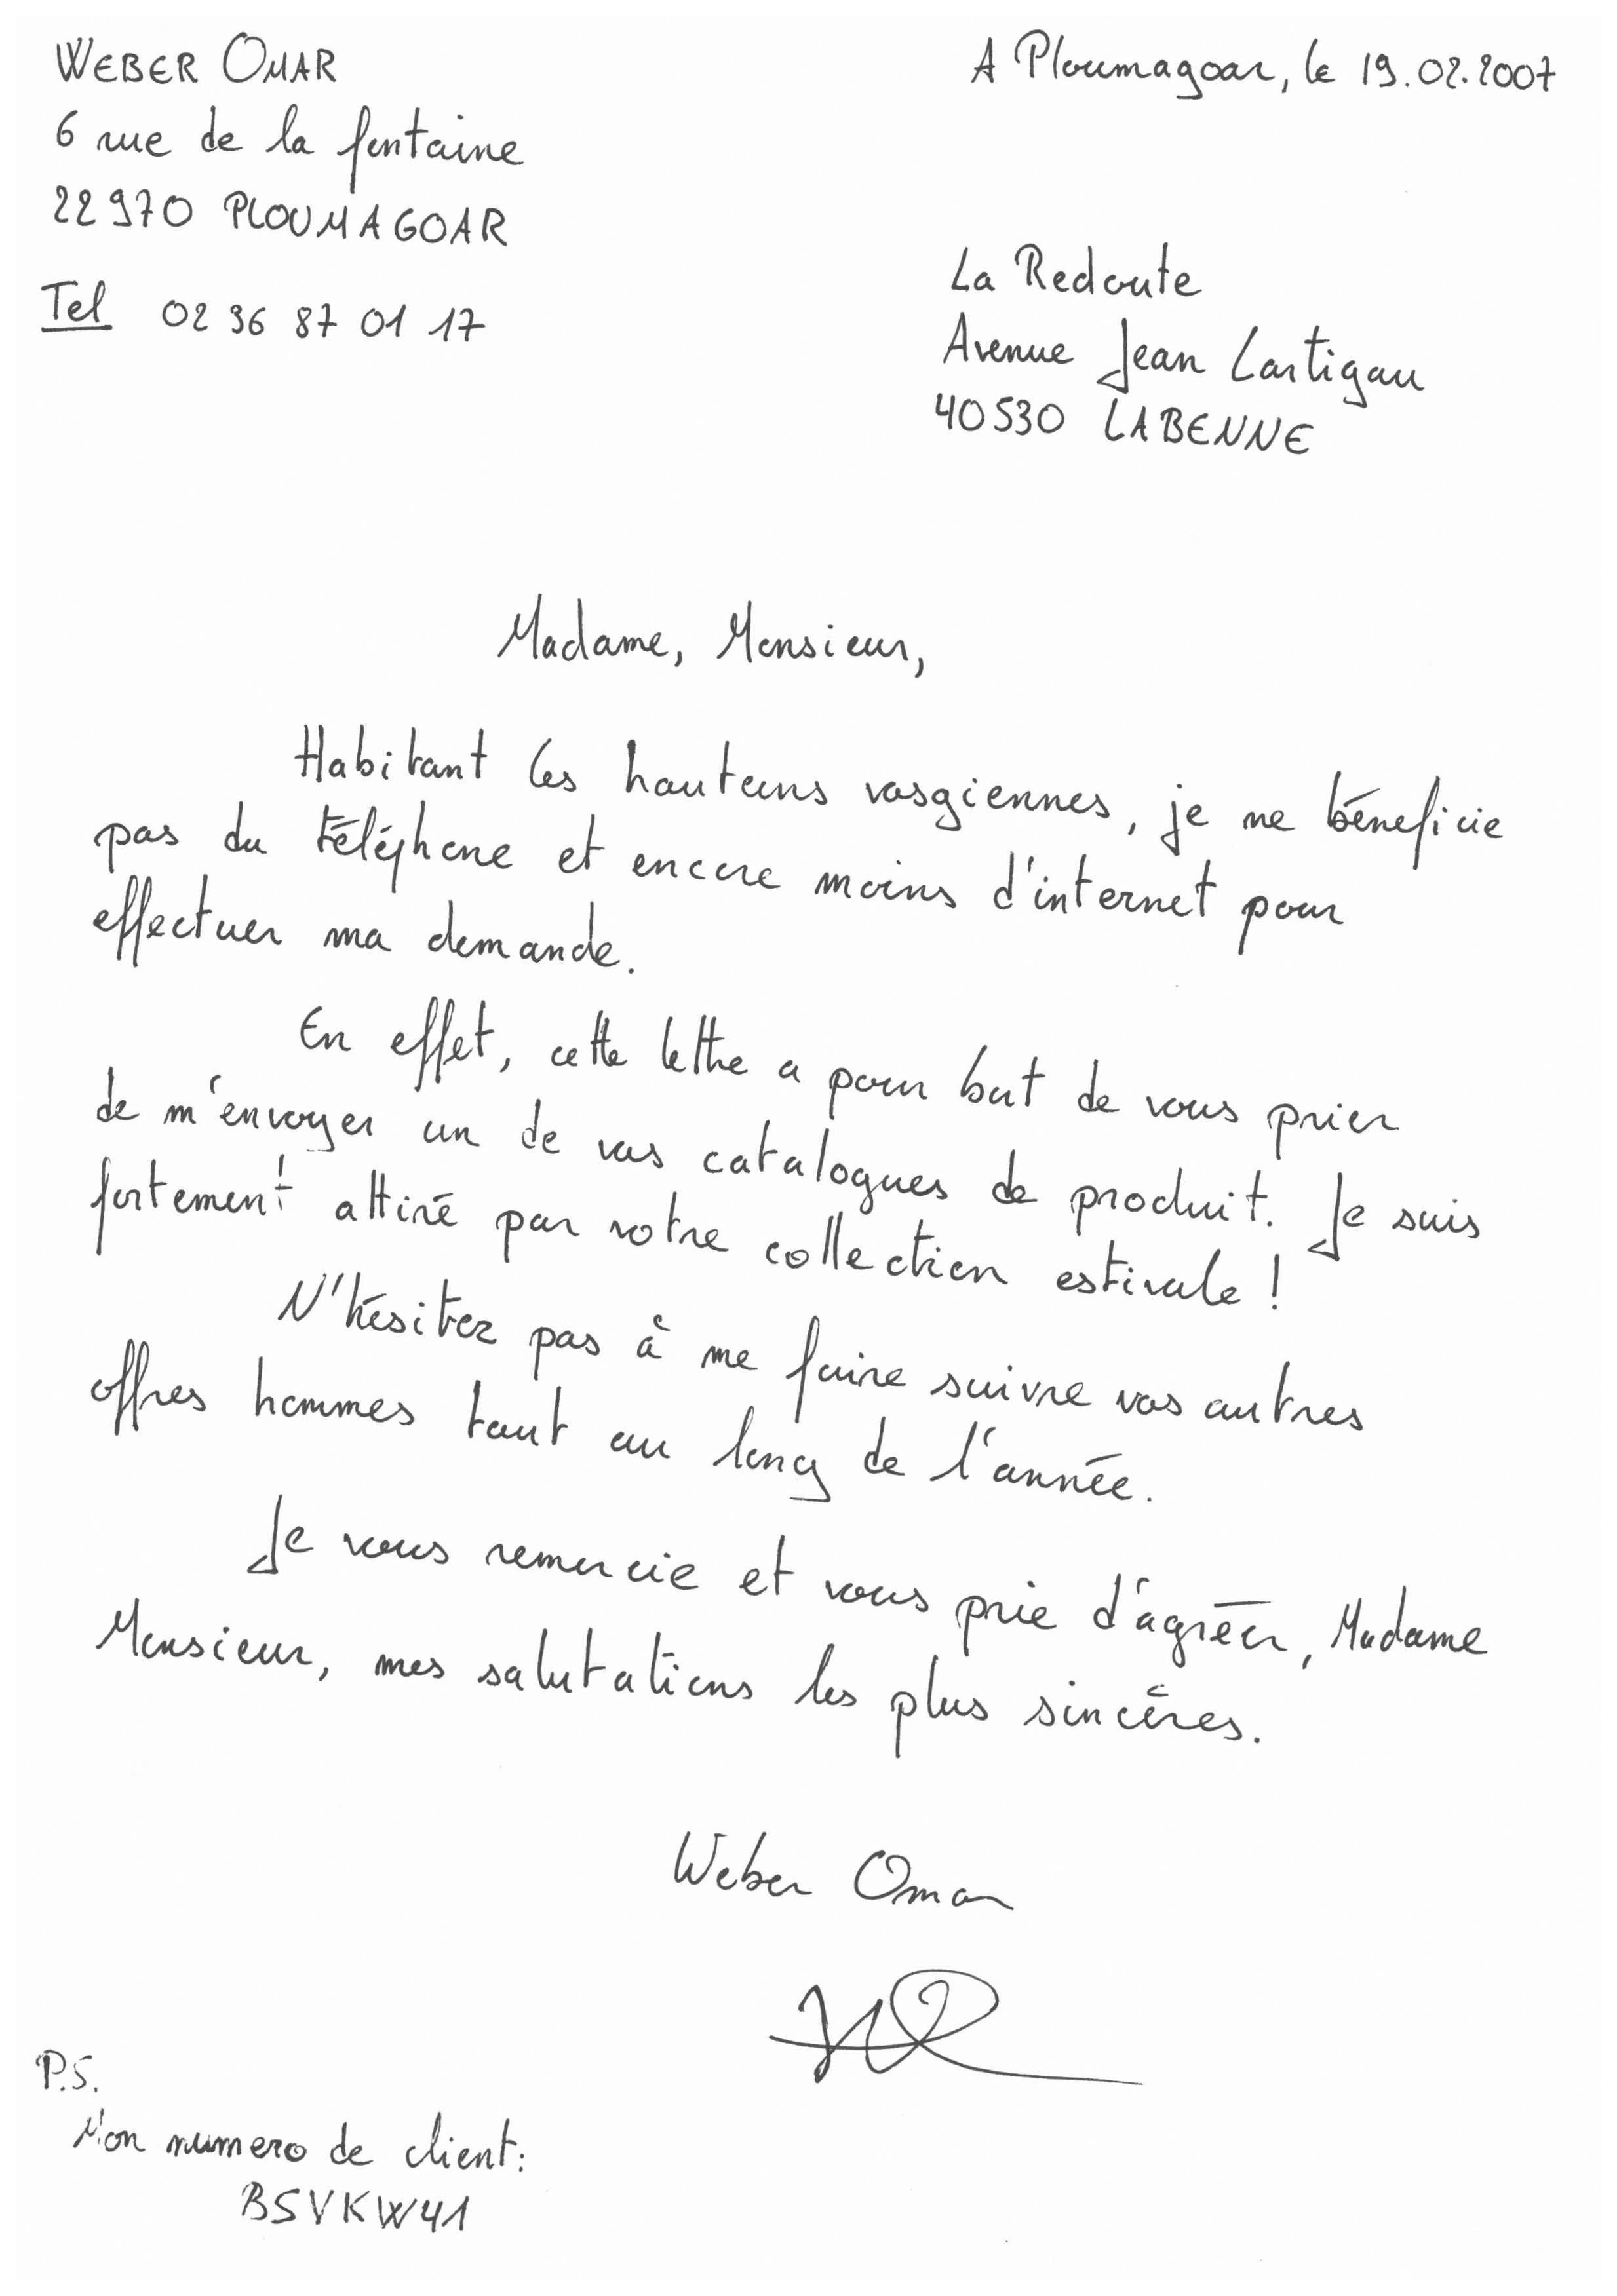 WEBER OMAR
6 rue de la fontaine
22970 PLOUMAGOAR
Tel 02 36 87 01 17
A Ploumagoar, le 19.02.2007
La Redoute
Avenue Jean Lartigau
40530 LABENNE
Madame, Monsieur,
Habitant les hauteurs vosgiennes, je ne béneficie
pas du téléphone et encore moins d'internet pour
effectuer ma demande.
En effet, cette lettre a pour but de vous prier
de m'envoyer un de vos catalogues de produit. Je suis
fortement attiré par votre collection estivale !
N'hésitez pas à me faire suivre vos autres
offres hommes tout au long de l'année.
Je vous remercie et vous prie d'agréer, Madame
Monsieur, mes salutations les plus sincères.
Weber Omar
P.S.
Mon numero de client:
BSVKW41